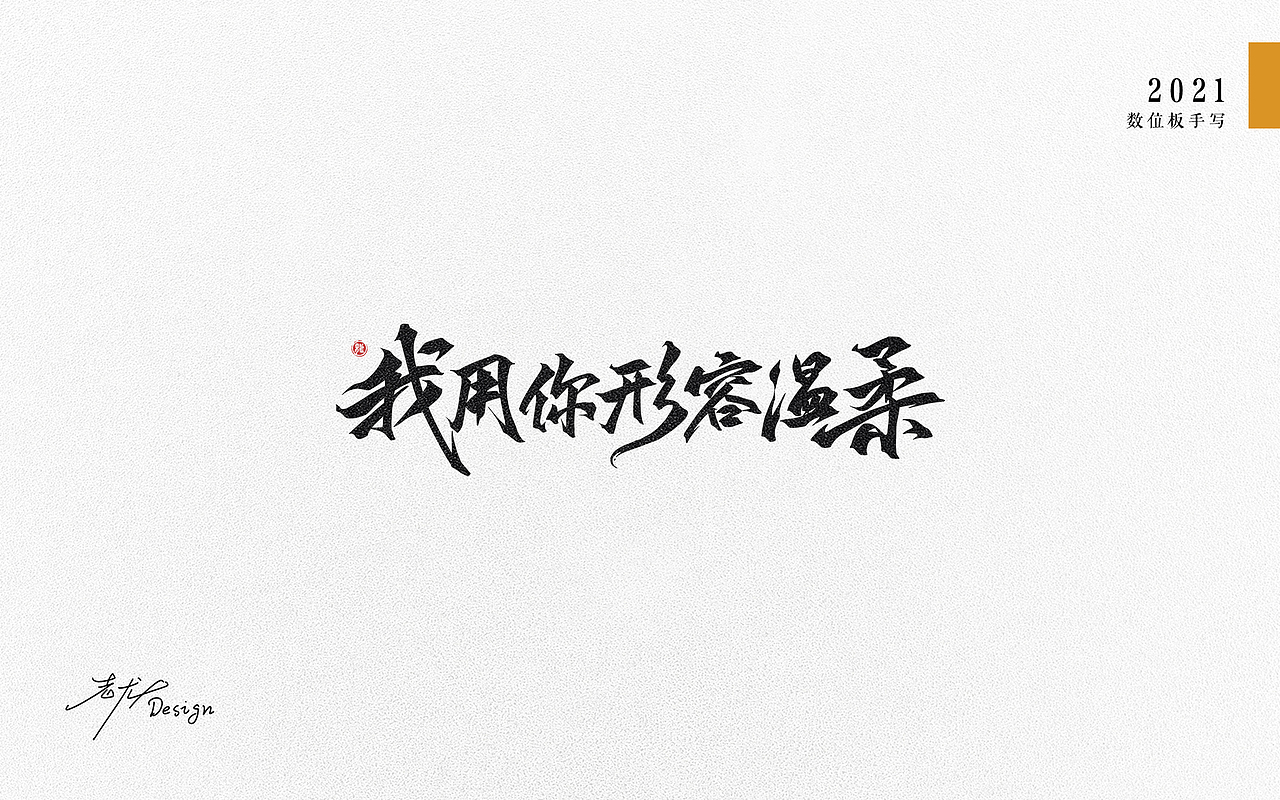 2021
数位板手写
我用你形容温柔
Design